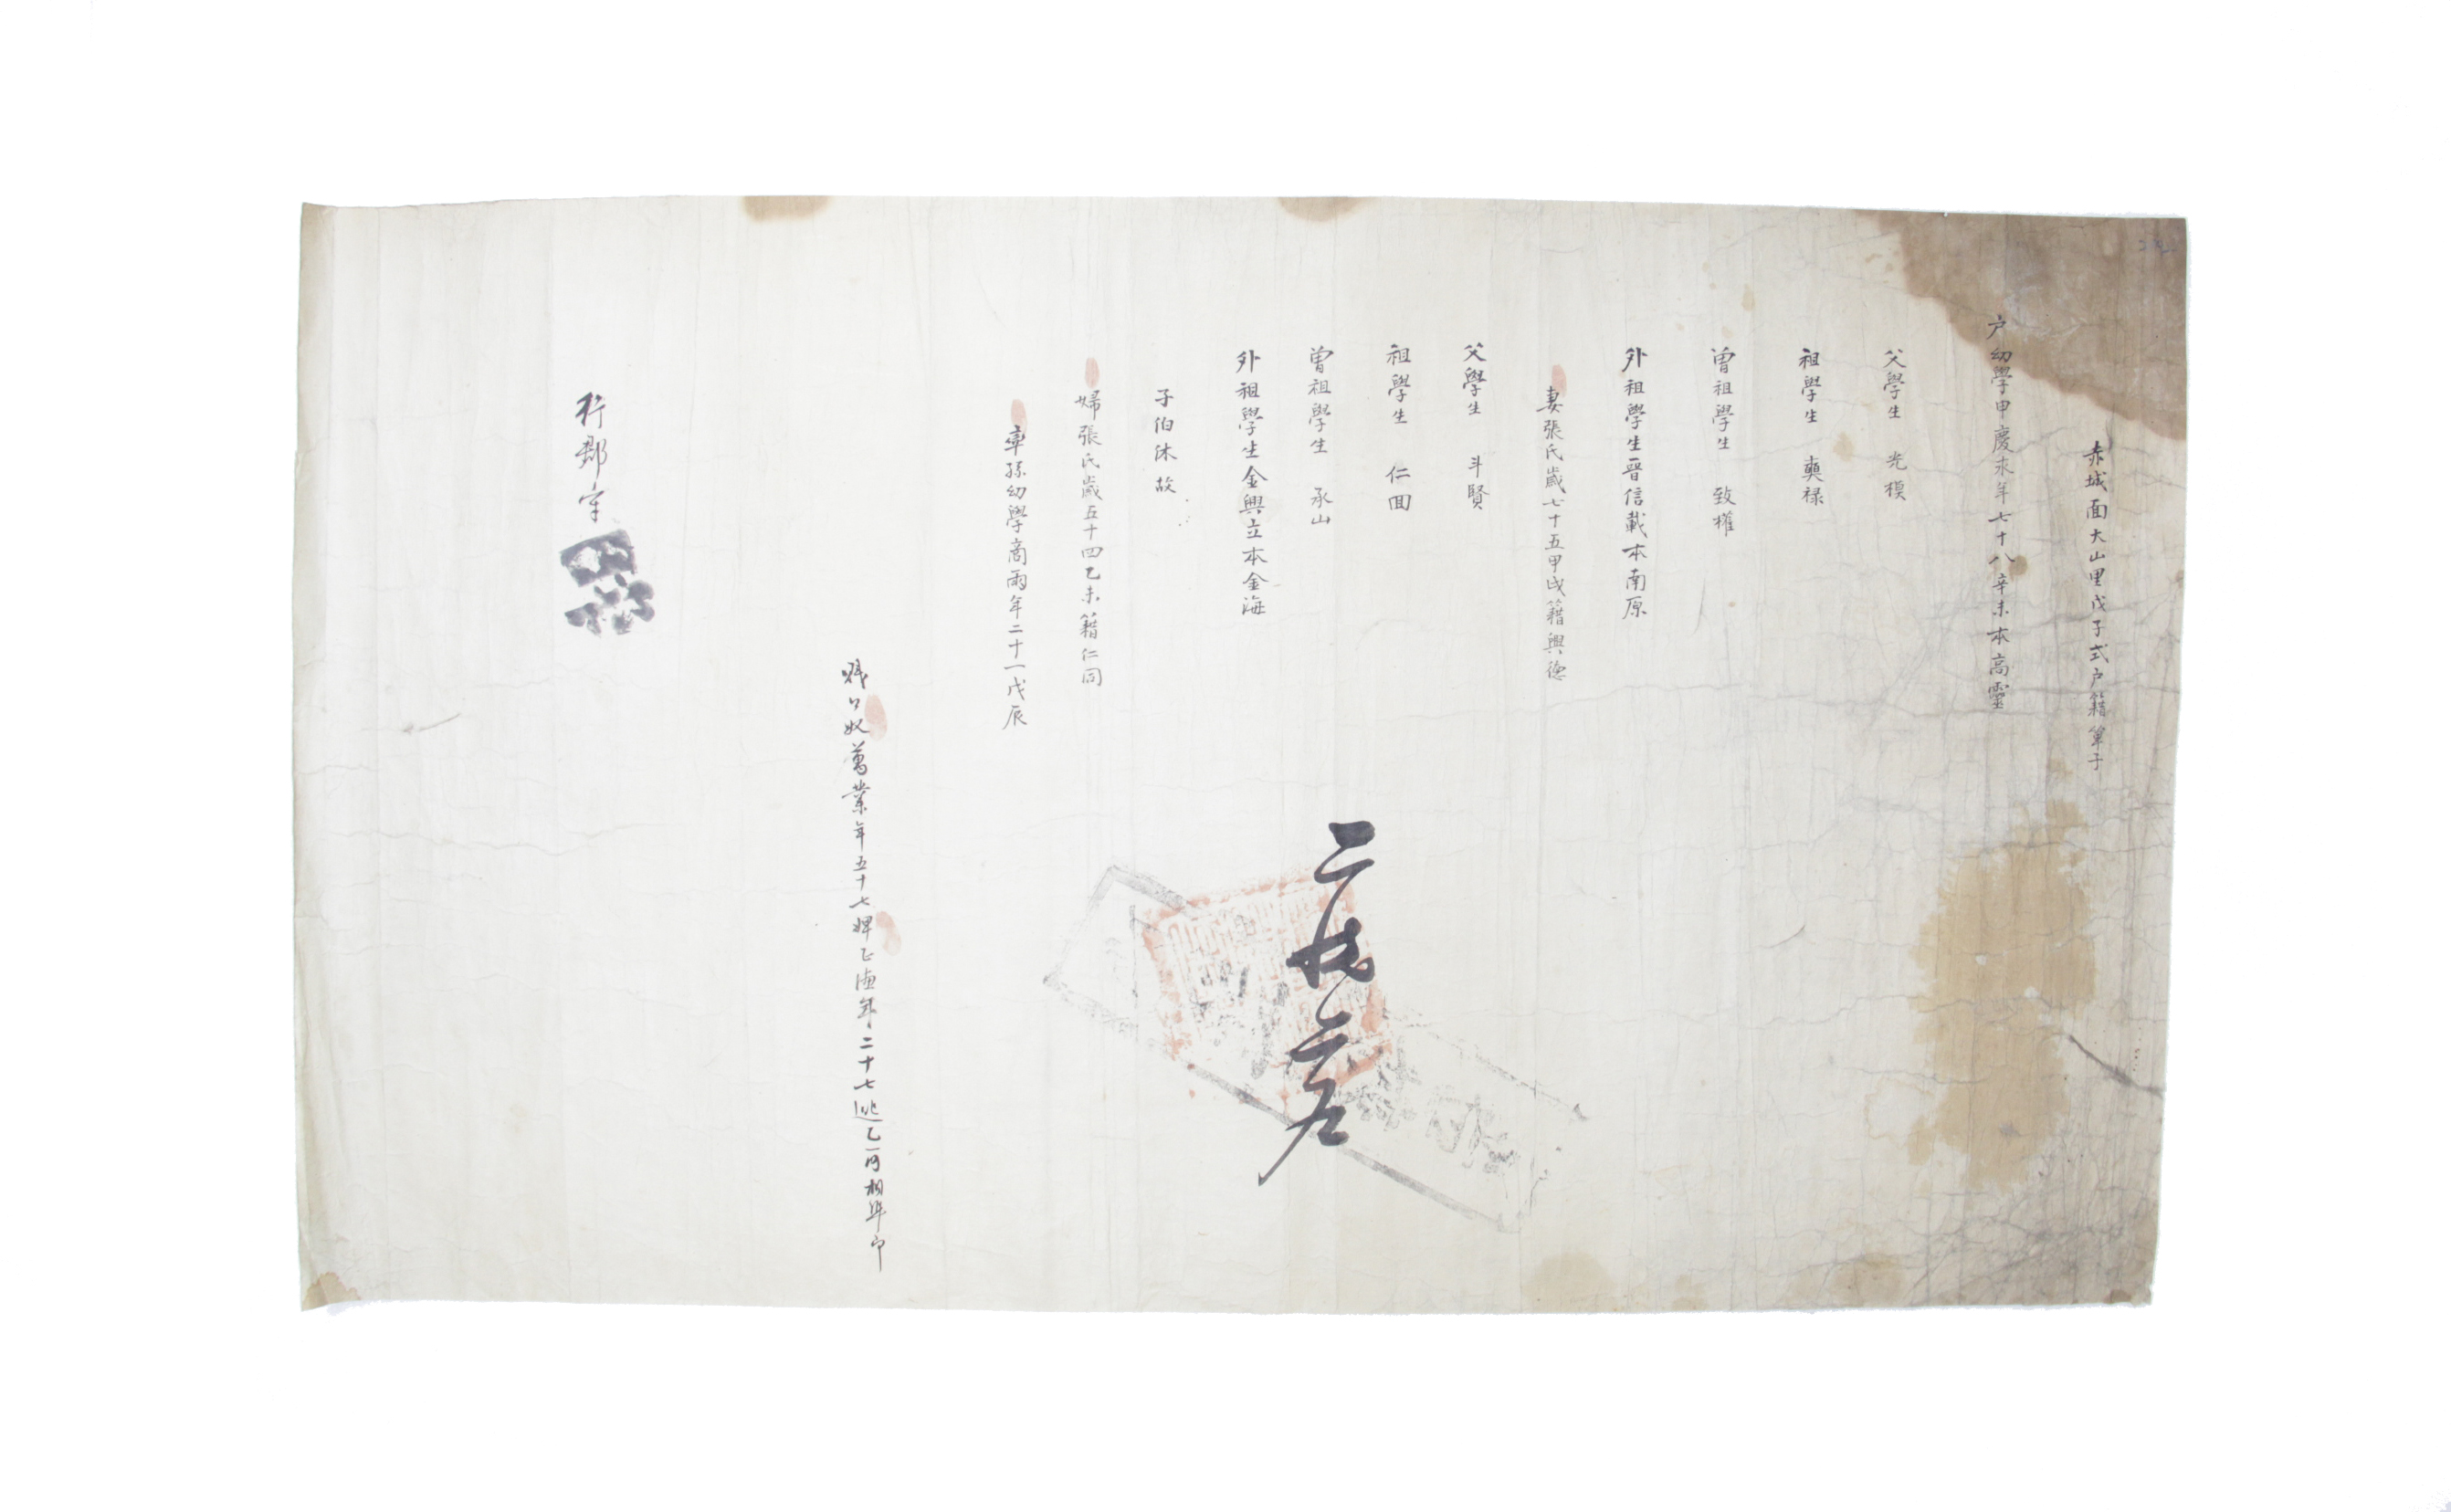 赤城面大山里戊子式户籍單子
户幼學申慶永年七十八辛未本高靈
父學生 光模
祖學生 奭禄
曾祖學生 致權
外祖學生晉信載本南原
妻張氏歲七十五甲戌籍興德
父學生 斗賢
祖學生 仁囬
曾祖學生 承山
外祖學生金興立本金海
子伯休故
婦張氏歲五十四乙未籍仁同
率孫幼學商雨年二十一戊辰
賤口奴萬業年五十七婢正德年二十七逃乙酉相準印
行郡守